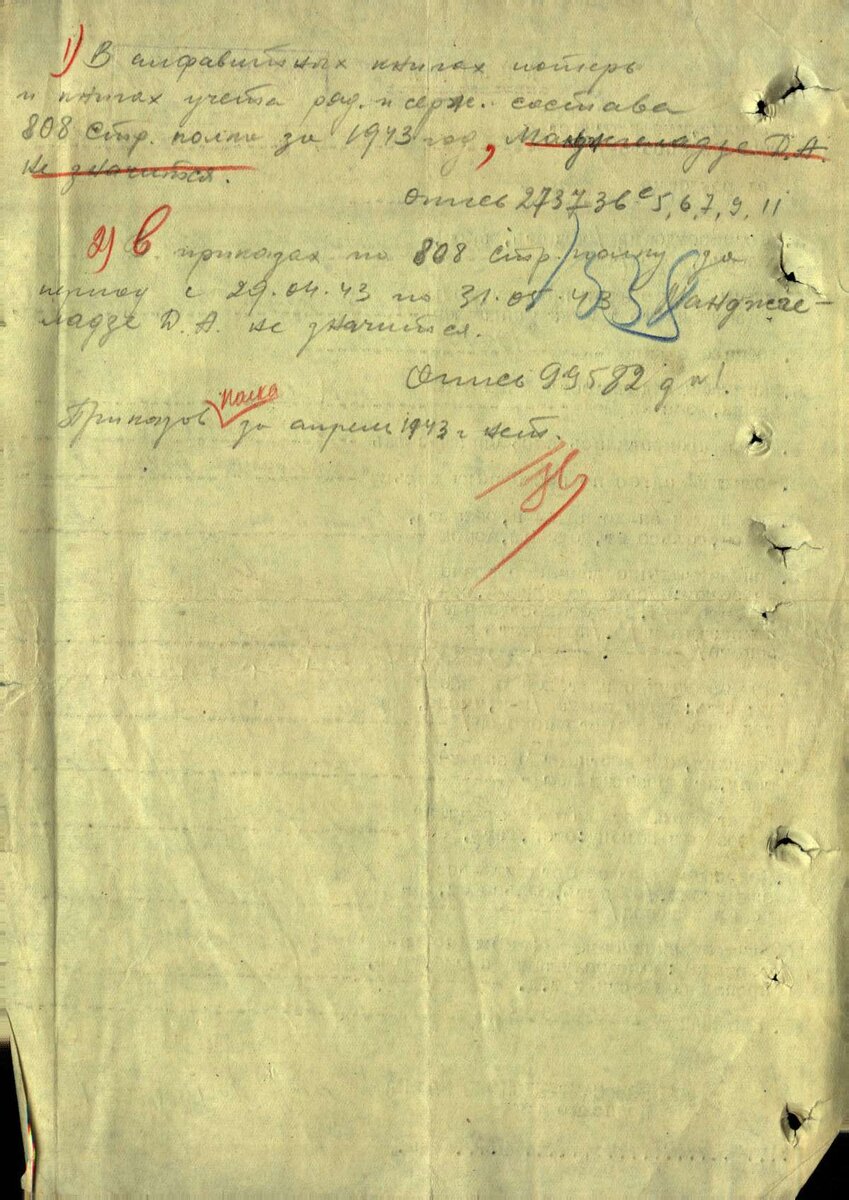 1) В алфавитных книгах потерь
и книгах учета ряд. и серж. состава
808 стр. полка за 1943 год, Манджгеладзе Д.А
не значится.
Опись 273736 с 5, 6, 7, 9, 11
2) В приказах по 808 стр. полку за
период с 29.04.43 по 31.05.43 Манджге-
ладзе Д.А. не значится.
338
Опись 99582 д №1.
полка
Приказов за апрель 1943 г нет.